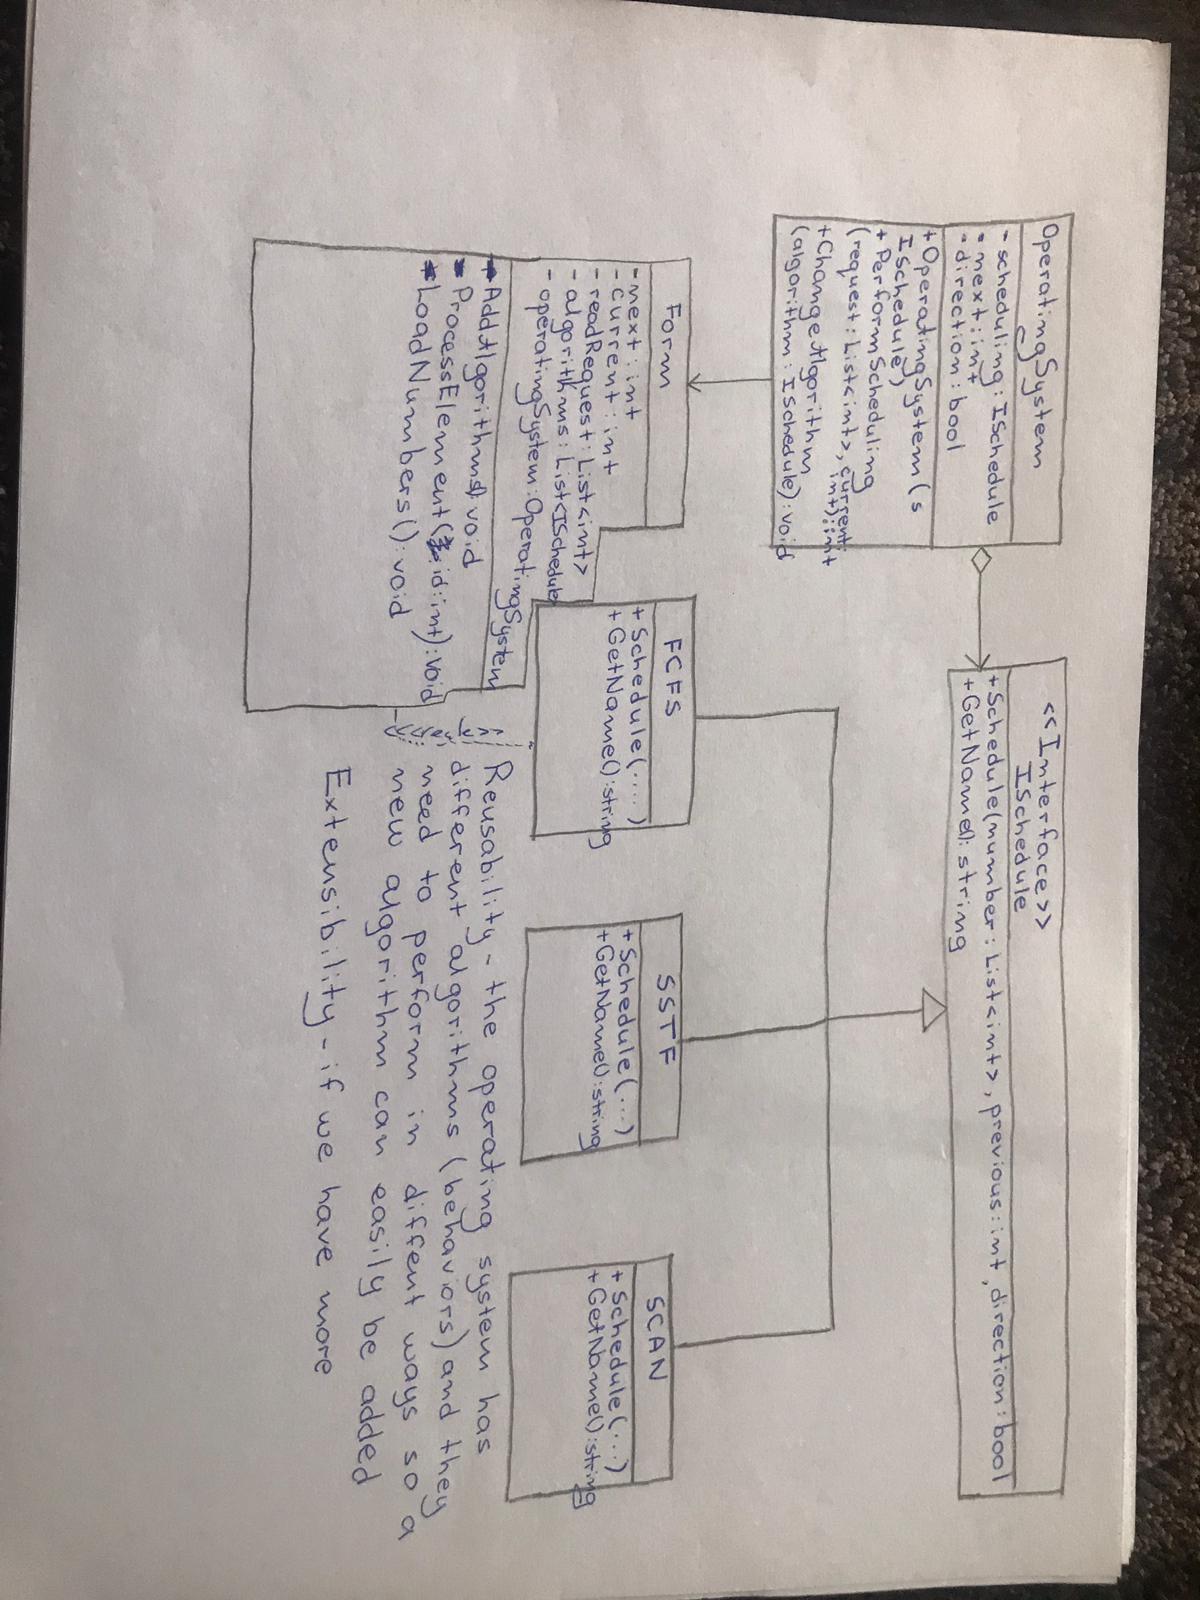 OperatingSystem
- scheduling: ISchedule
- next: int
- direction: bool
+ OperatingSystem(s
ISchedule)
+ PerformScheduling
(request: List<int>, current:
int): int
+ChangeAlgorithm
(algorithm: ISchedule): void
<<Interface>>
ISchedule
+Schedule(number: List<int>, previous: int, direction: bool
+GetName(): string
Form
- next: int
- current: int
- readRequest: List<int>
- algorithms: List<ISchedule
- operatingSystem: OperatingSystem
AddAlgorithms(): void
- ProcessElement( id: int): void
LoadNumbers(): void
FCFS
+ Schedule(....)
+ GetName(): string
SSTF
+ Schedule(...)
+ GetName(): string
SCAN
+ Schedule(...)
+ GetName(): string
Reusability - the operating system has
different algorithms (behaviors) and they
need to perform in diffent ways so a
new algorithm can easily be added
Extensibility - if we have more